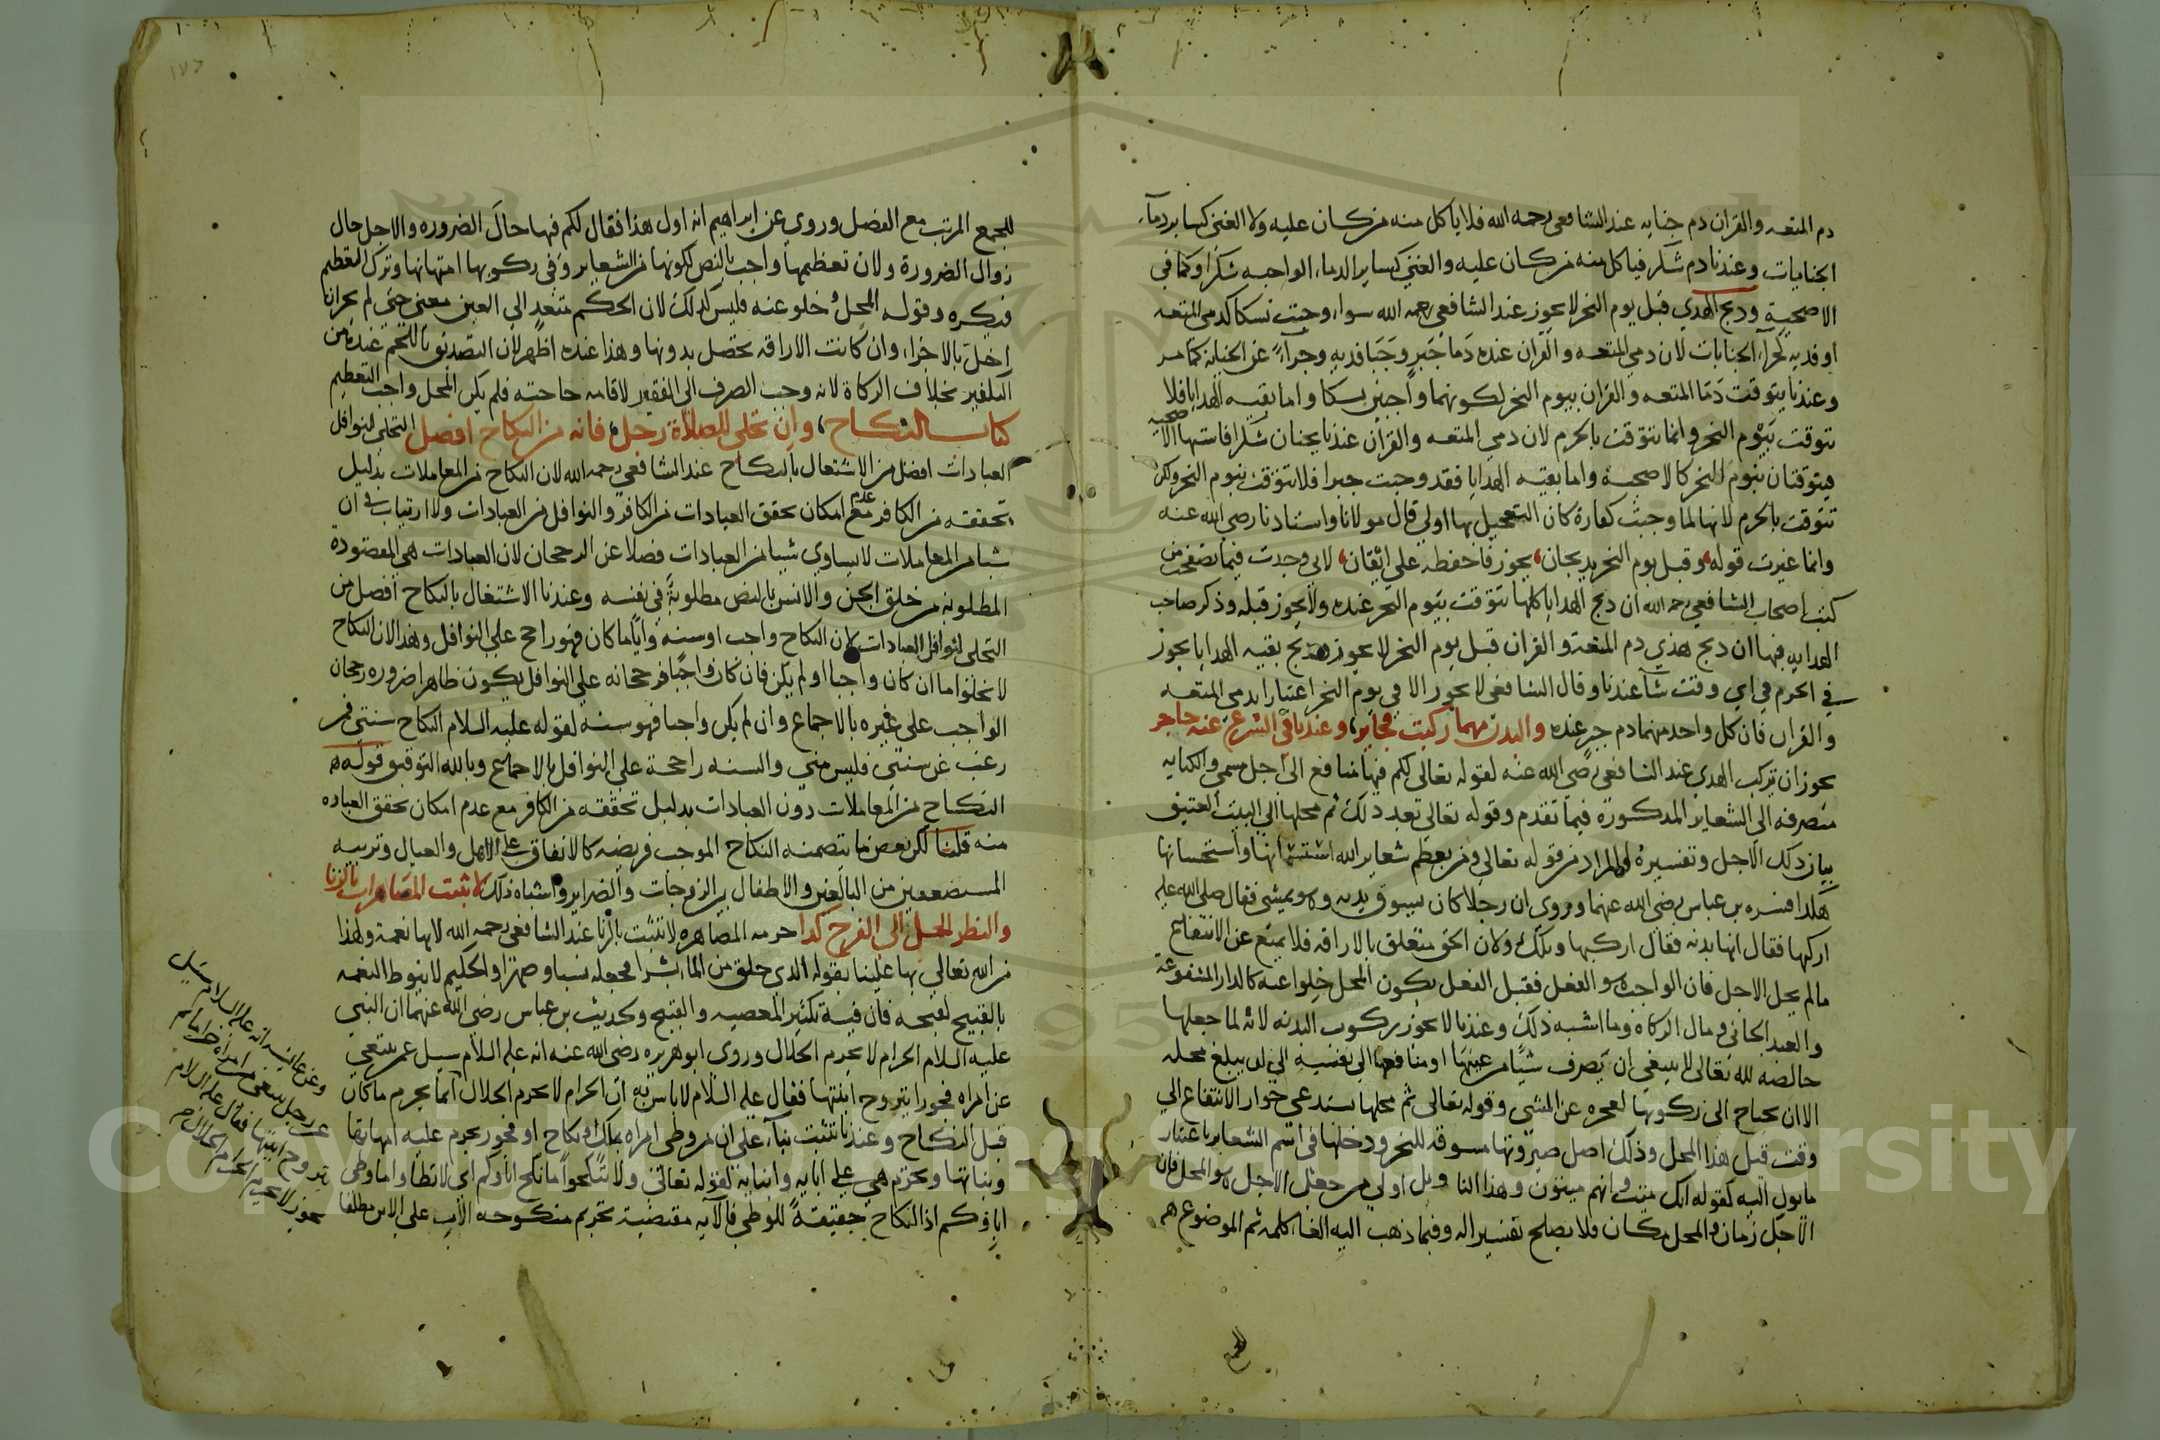 دم المتعه والقران دم جنايه عند الشافعي رحمه الله فلا ياكل منه من كان عليه ولا الغني كساير دمآء
الجنايات وعندنا دم شكر فياكل منه من كان عليه والغني كساير الدماء الواجبه شكرا وكما في
الاضحية وذبح الهدي قبل يوم النحر لا يجوز عند الشافعي رحمه الله سواء وجبت نسكا كدمي المتعه
او فديه لجزآء الجنايات لان دمي المتعه والقران عنده دما جبر وجبا فديه وجزآء عن الجنايه كما مر
وعندنا يتوقت دما المتعه والقران بيوم النحر لكونهما واجبين نسكا واما بقيه الهدايا فلا
تتوقت بيوم النحر وانما تتوقت بالحرم لان دمي المتعه والقران عندنا يجبان شكرا فاشبها الاضحيه
فيتوقتان بيوم النحر كالاضحية واما بقيه الهدايا فقد وجبت جبرا فلا تتوقت بيوم النحر ولكن
تتوقت بالحرم لانها لما وجبت كفارة كان التعجيل بها اولي قال مولانا واستادنا رضي الله عنه
وانما غيرت قوله وقبل يوم النحر يذبحان يجوز فاحفظه علي اتقان لاني وجدت فيما تصفحت من
كتب اصحاب الشافعي رحمه الله ان ذبح الهدايا كلها تتوقت بيوم النحر عنده ولا يجوز قبله وذكر صاحب
الهدايه فيها ان ذبح هذي دم المتعة والقران قبل يوم النحر لا يجوز وذبح بقيه الهدايا يجوز
في الحرم في اي وقت شآ عندنا وقال الشافعي لا يجوز الا في يوم النحر اعتبارا بدمي المتعه
والقران فان كل واحد منهما دم جبر عنده والبدن مهما ركبت فجايز وعندنا في الشرع عنه حاجز
يجوز ان يركب الهدي عند الشافعي رضي الله عنه لقوله تعالى لكم فيها منافع الى اجل مسمي والكنايه
منصرفه الى الشعاير المذكورة فيما تقدم وقوله تعالي بعد ذلك ثم محلها الى البيت العتيق
بيان ذلك الاجل وتفسيره والمراد من قوله تعالي ومن يعظم شعاير الله استسمانها واستحسانها
هكذا فسره بن عباس رضي الله عنهما وروي ان رجلا كان يسوق بدنه وهو يمشي فقال صلى الله عليه
اركبها فقال انها بدنه فقال اركبها ويلك ولان الحق متعلق بالاراقه فلا يمنع عن الانتفاع
مالم يحل الاجل فان الواجب هو الفعل فقبل الفعل يكون المحل خلوا عنه كالدار المشفوعة
والعبد الجاني ومال الزكاه وما اشبه ذلك وعندنا لا يجوز ركوب البدنه لانه لما جعلها
خالصه لله تعالى لا ينبغي ان يصرف شيًا من عينها او منافعها الى نفسه الى ان يبلغ محله
الا ان يحتاج الى ركوبها لعجزه عن المشي وقوله تعالى ثم محلها يستدعي جواز الانتفاع الى
وقت قبل هذا المحل وذلك اصل صيرورتها مسوقه للنحر ودخلها في اسم الشعاير باعتبار
ما يول اليه كقوله انك ميت وانهم ميتون وهذا التاويل اولي من جعل الاجل هو المحل فان
الاجل زمان والمحل مكان فلا يصلح تفسيرا له وفيما ذهب اليه الغاء كلمه ثم الموضوع هم
للجمع المرتب مع الفصل وروي عن ابراهيم انه اول هذا فقال لكم فيها حال الضروره والاجل حال
زوال الضرورة ولان تعظيمها واجب بالنص لكونها من الشعاير وفي ركوبها امتهانها وترك التعظيم
فيكره وقوله المحل خلو عنه فليس كذلك لان الحكم متعد الى العين معني حتى لم يجز اذا
اخل بالاجزاء وان كانت الاراقه تحصل بدونها وهذا عنده اظهر لان التصدق باللحم عنده من
التلفير بخلاف الزكاة لانه وجب الصرف الى الفقير لاقامه حاجته فلم يكن المحل واجب التعظيم
كتاب النكاح وان تخلي للصلاة رجل فانه من النكاح افضل التخلي لنوافل
العبادات افضل من الاشتغال بالنكاح عند الشافعي رحمه الله لان النكاح من المعاملات بدليل
تحققه من الكافر مع عدم امكان تحقق العبادات من الكافر والنوافل من العبادات ولا ارتياب في ان
شيا من المعاملات لا يساوي شيا من العبادات فضلا عن الرجحان لان العبادات هي المقصودة
المطلوبة من خلق الجن والانس بالنص مطلوبة في نفسه وعندنا الاشتغال بالنكاح افضل من
التخلي لنوافل العبادات لان النكاح واجب او سنه واياما كان فهو راجح علي النوافل وهذا لان النكاح
لا يخلوا ما ان كان واجبا او لم يكن فان كان واجبا فرجحانه علي النوافل يكون ظاهرا ضروره رجحان
الواجب علي غيره بالاجماع وان لم يكن واجبا فهو سنه لقوله عليه السلام النكاح سنتي فمن
رغب عن سنتي فليس مني والسنه راجحة على النوافل بالاجماع وبالله التوفيق قوله
النكاح من المعاملات دون العبادات بدليل تحققه من الكافر مع عدم امكان تحقق العباده
منه قلنا لكن بعض ما يتضمنه النكاح الموجب فريضه كالانفاق على الاهل والعيال وتربيه
المستضعفين من البالغين والاطفال بين الزوجات والضراير واشباه ذلك لا تثبت المصاهرات بالزنا
والنظر المحل الى الفرج كذا حرمه المصاهره لا تثبت بالزنا عند الشافعي رحمه الله لانها نعمة ولهذا
من الله تعالي بها علينا بقوله الذي خلق من الماء بشرا فجعله نسبا وصهرا والحكيم لا ينوط النعمه
بالقبيح لقبحه فان فيه تكثير المعصيه والقبح وحديث بن عباس رضي الله عنهما ان النبي
عليه السلام الحرام لا يحرم الحلال وروي ابو هريره رضي الله عنه انه عليه السلام سيل عمن يبتغي
عن امراه فجورا يتزوج ابنتها فقال عليه السلام لا باس به ان الحرام لا يحرم الحلال انما يحرم ماكان
قبل النكاح وعندنا تثبت بنآء علي ان من وطي امراه بملك او نكاح او فجور يحرم عليه امهاتها
وبناتها وتحرم هي علي آبايه وابنايه لقوله تعالى ولا تنكحوا ما نكح آباؤكم اي لا تطاوا ما وطي
اباؤكم اذ النكاح حقيقة للوطي فالآيه مقتضية تحريم منكوحه الاب علي الابن مطلقا
وعن عايشه انه عليه السلام سيل
عن رجل يبتغي من امراه حراما ثم
يتزوج ابنتها فقال عليه السلام
يجوز لا يحرم الحرام الحلال